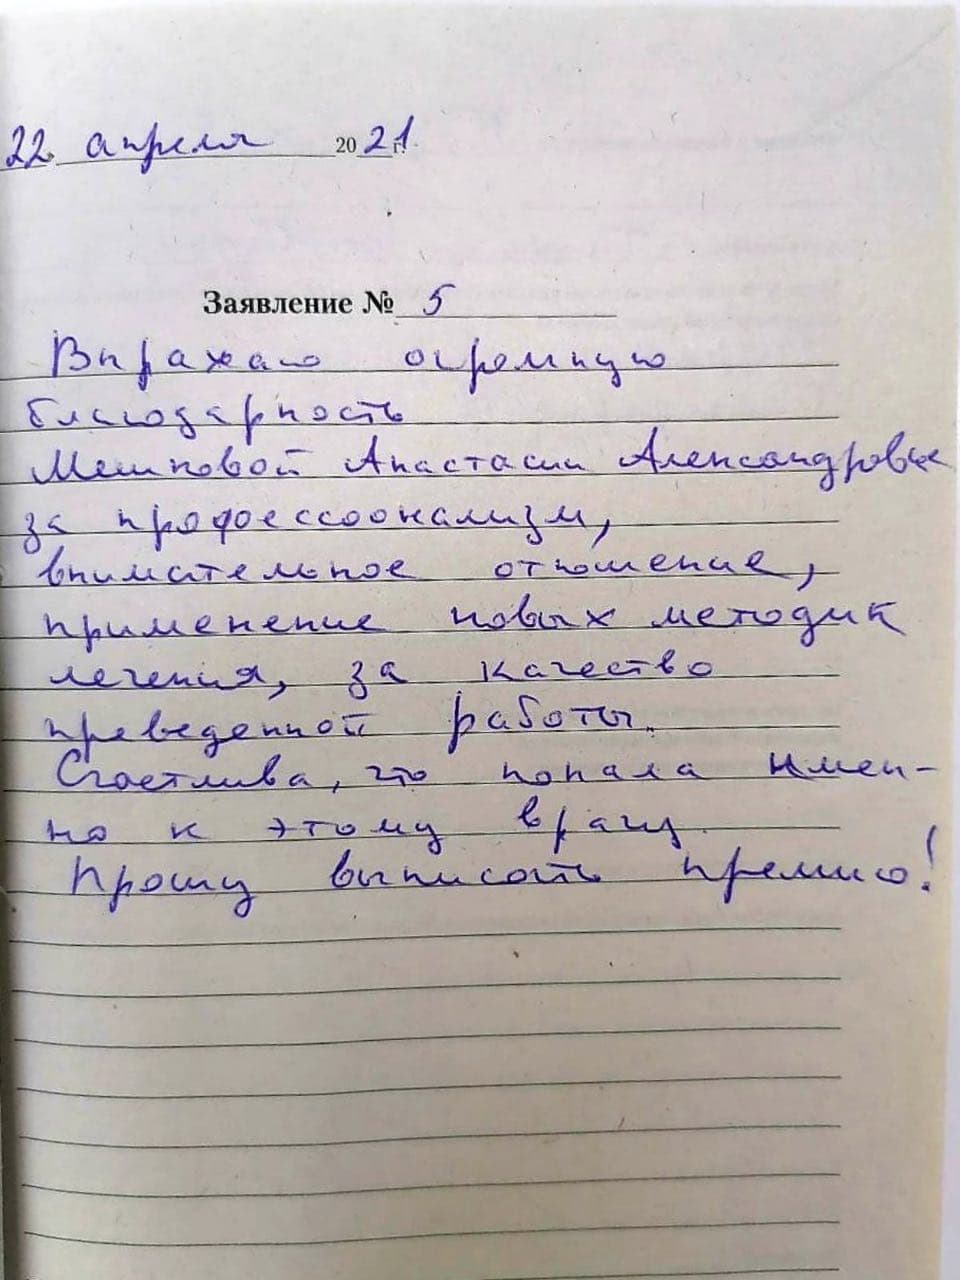 22 апреля 2021 г.
Заявление № 5
Выражаю огромную
благодарность
Мешковой Анастасии Александровне
за профессионализм,
внимательное отношение,
применение новых методик
лечения, за качество
проведенной работы.
Счастлива, что попала имен-
но к этому врачу.
Прошу выписать премию!